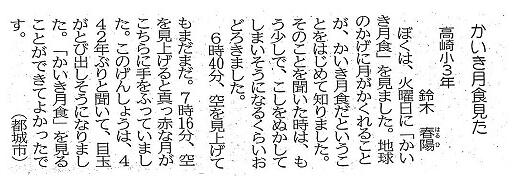 かいき月食見た
高崎小３年
鈴木　春陽
はるひ
ぼくは、火曜日に「かい
き月食」を見ました。地球
のかげに月がかくれること
が、かいき月食だというこ
とをはじめて知りました。
そのことを聞いた時は、も
う少しで、こしをぬかして
しまいそうになるくらいお
どろきました。
６時40分、空を見上げて
もまだまだ。７時16分、空
を見上げると真っ赤な月が
こちらに手をふっていまし
た。このげんしょうは、４
４２年ぶりと聞いて、目玉
がとび出しそうになりまし
た。「かいき月食」を見る
ことができてよかったで
す。
（都城市）